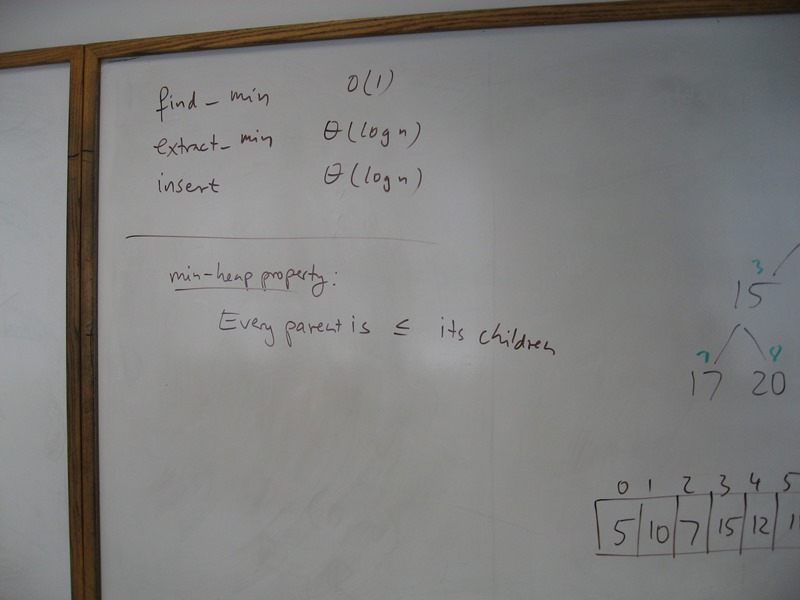 find_min O(1)
extract_min θ(log n)
insert θ(log n)
min-heap property:
Every parent is ≤ its children
3
15
7 8
17 20
0 1 2 3 4 5
5 10 7 15 12